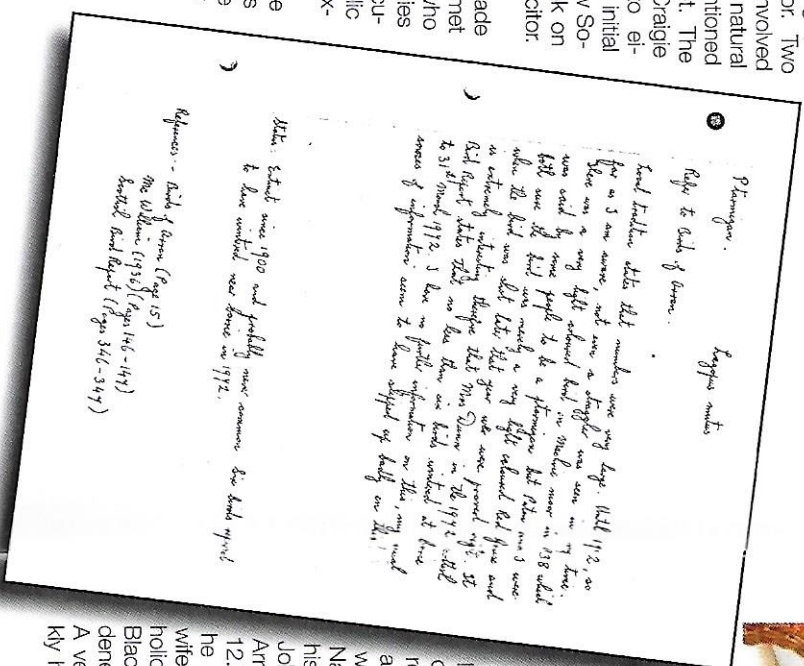 or. Two
nvolved
natural
ntioned
t. The
Craigie
to ei-
initial
w So-
k on
citor.
ade
met
who
ies
cu-
lic
x-
e
s
e
Ptarmigan. Lagopus mutus
Refer to Birds of Arran.
Local tradition states that numbers were very large. Until 1942, so
far as I am aware, not even a straggler was seen in my time.
There was a very light coloured bird in moor in 1938 which
was said by some people to be a ptarmigan but Peter and I were
both sure the bird was merely a very light coloured Red Grouse and
when the bird was shot later that year we were proved right. It
is extremely interesting therefore that Miss Dunn in the 1972 Scottish
Bird Report states that no less than six birds wintered at
to 31st March 1972. I have no further information on this, my usual
sources of information seem to have slipped up badly on this!
Status: Extinct since 1900 and probably never common. Six birds
to have wintered near in 1972.
References:- Birds of Arran (Page 15)
McWilliam (1936) (Pages 146-147)
Scottish Bird Report (Pages 346-347)
c
r
a
w
Na
his
Jol
Arr
12.
he
wife
holic
Blac
dene
A ve
kly h